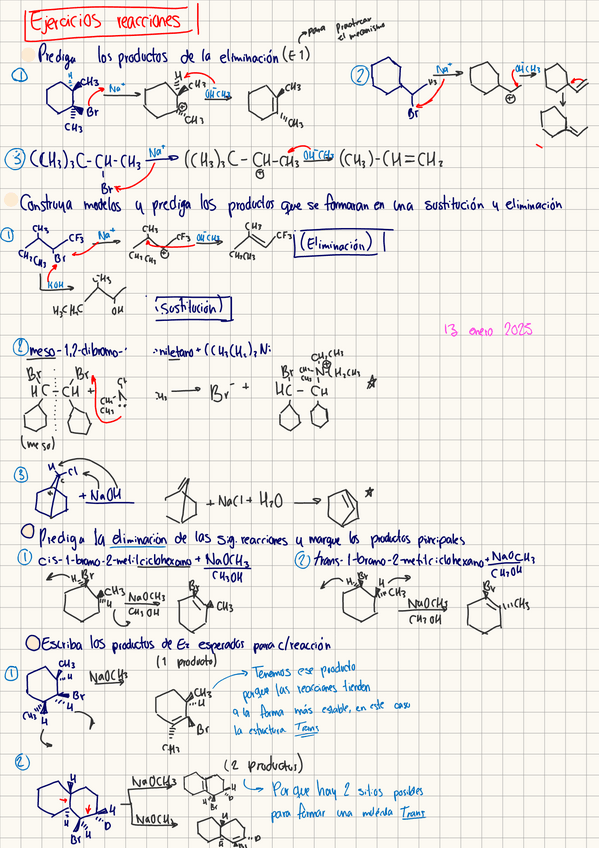 Ejercicios reacciones
para practicar
el mecanismo
Prediga los productos de la eliminación (E1)
① H CH₃ Br CH₃ Na⁺ H CH₃ ⊕ CH₃ OH⁻CH₃ CH₃ CH₃
② Br Na⁺ ⊕ OH⁻CH₃
③ (CH₃)₃C-CH-CH₃ Na⁺ (CH₃)₃C-CH-CH₃ OH⁻CH₃ (CH₃)-CH=CH₂
Br ⊕
Construya modelos y prediga los productos que se formaran en una sustitución y eliminación
① CH₃ CF₃ Br CH₂CH₃ Na⁺ CH₃ CF₃ ⊕ OH⁻CH₃ CH₃ CF₃ (Eliminación)
KOH
H₃CH₂C OH (Sustitución)
13 enero 2025
② meso-1,2-dibromo- niletano + ((CH₃CH₂)₃N:
Br Br
HC-CH + → Br⁻ + HC-CH
(meso)
③ H Cl + NaOH + NaCl + H₂O →
Prediga la eliminación de las sig. reacciones y marque los productos principales
① cis-1-bromo-2-metilciclohexano + NaOCH₃
CH₃OH
② trans-1-bromo-2-metilciclohexano + NaOCH₃
CH₃OH
H Br CH₃ H NaOCH₃ CH₃OH Br CH₃
H Br H CH₃ NaOCH₃ CH₃OH Br CH₃
Escriba los productos de E₂ esperados para c/reacción
① CH₃ H Br H CH₃ H NaOCH₃ (1 producto) CH₃ H Br CH₃
Tenemos ese producto
porque las reacciones tienden
a la forma más estable, en este caso
la estructura Trans
② H H D H Br H NaOCH₃ (2 productos) H H D Br
NaOCH₃ H D Br
Porque hay 2 sitios posibles
para formar una molécula Trans